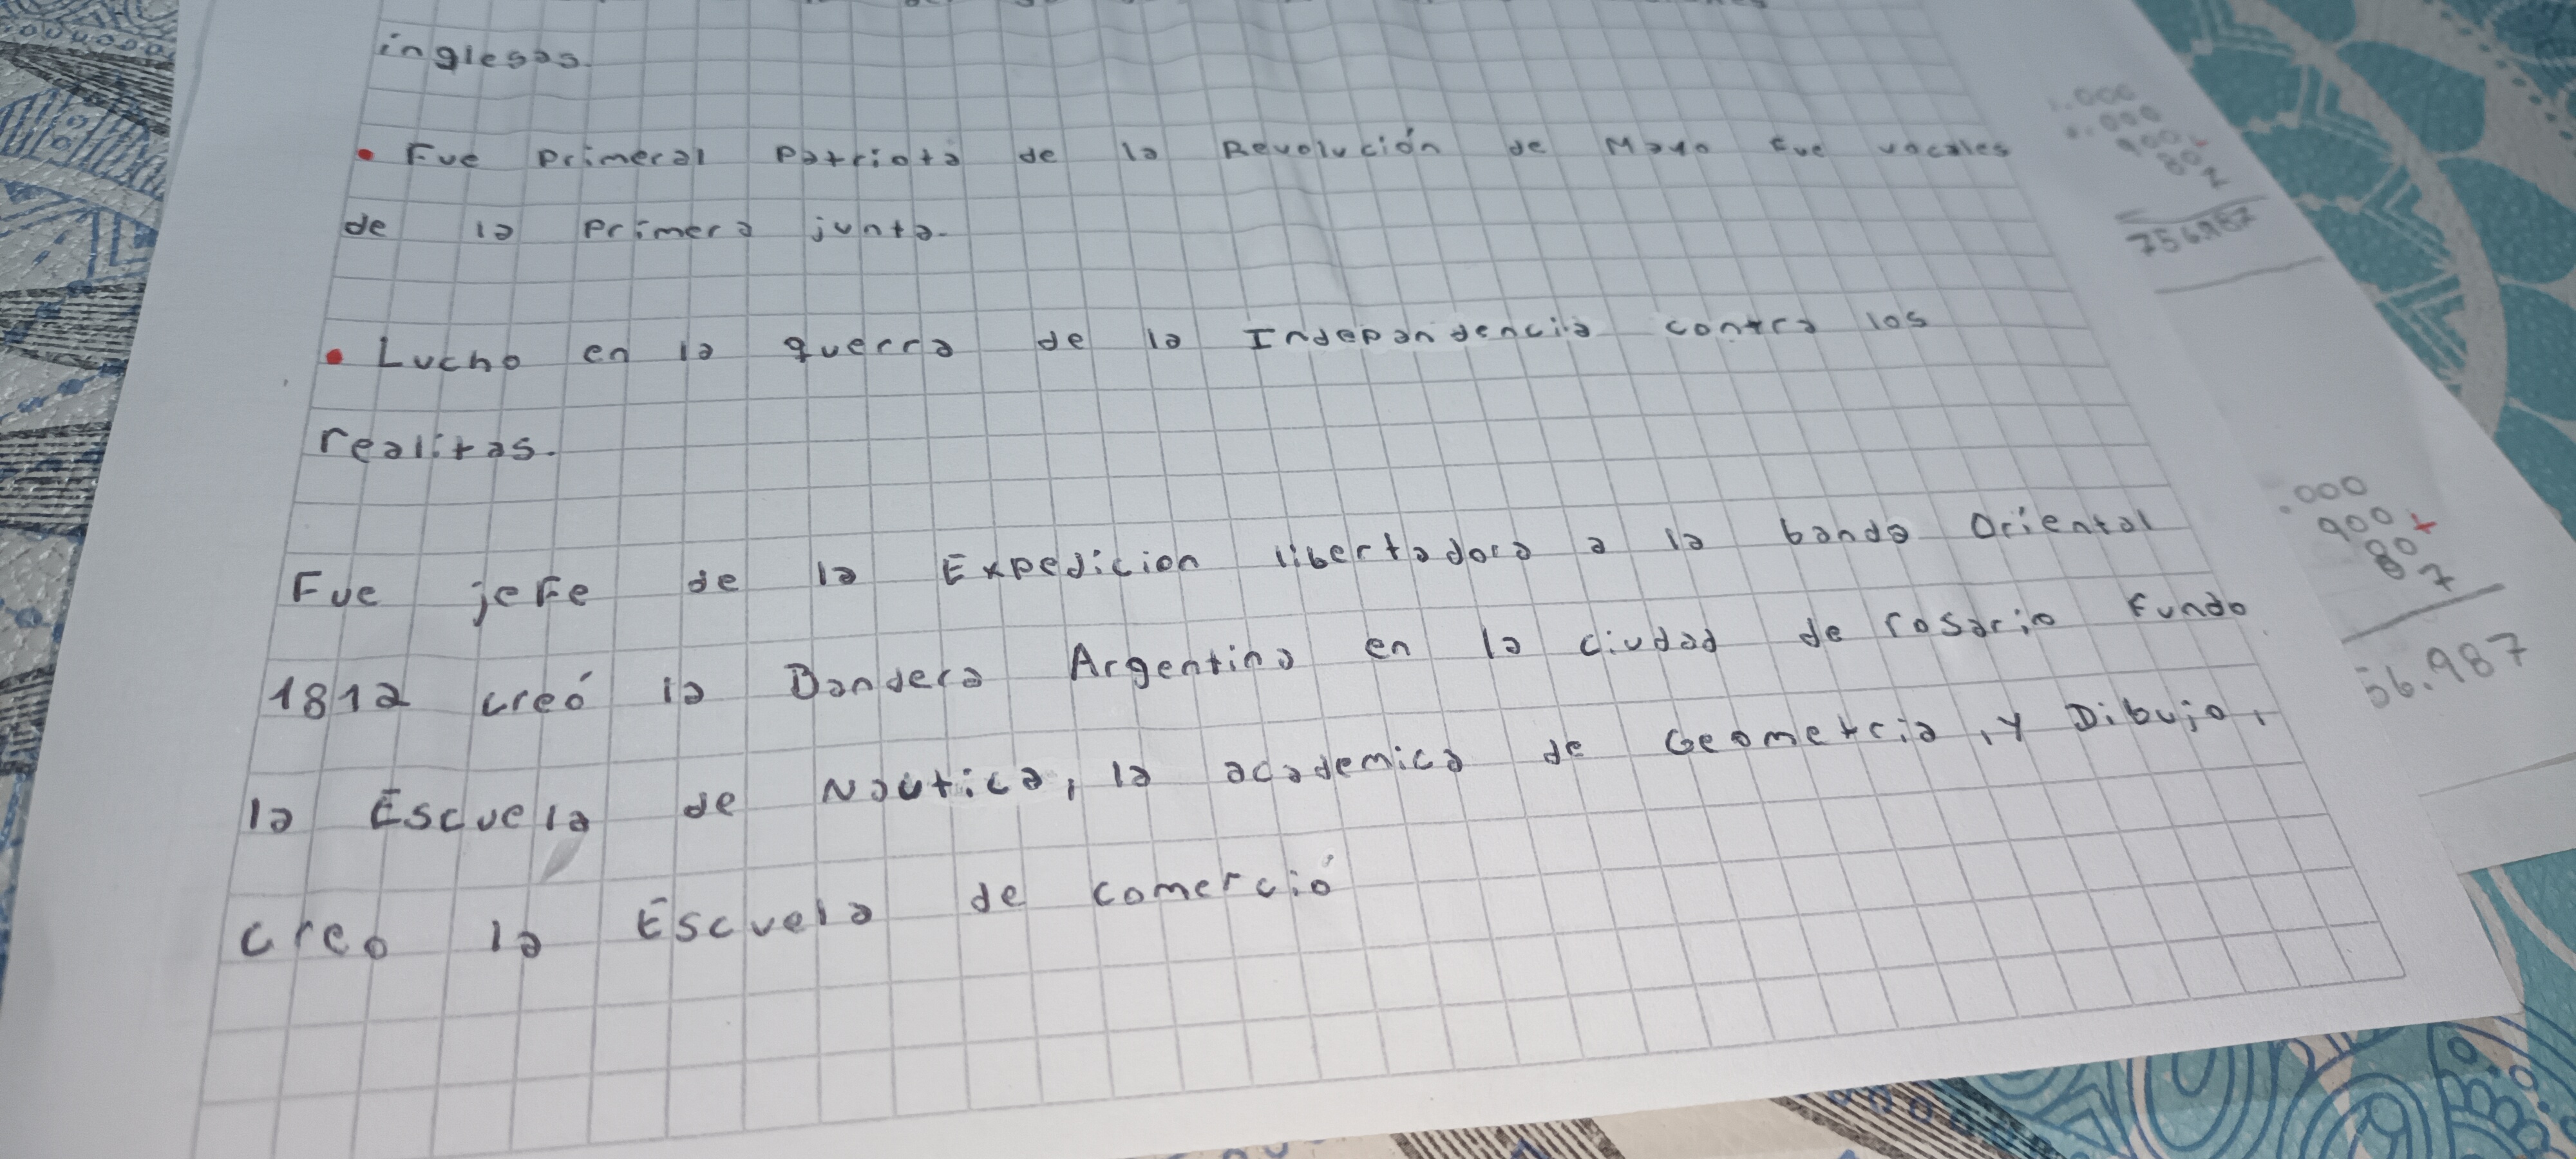 inglesas.
• Fue primeral patriota de la Revolución de Mayo fue vocales
de la primera junta.
• Lucho en la guerra de la Independencia contra los
realitas.
Fue jefe de la Expedicion libertadora a la banda Oriental
1812 creó la Bandera Argentina en la ciudad de rosario fundo
la Escuela de Nautica, la academica de Geometria, y Dibujo,
creo la Escuela de comerció
.000
.000
900
80
2
756.982
.000
900 +
80
7
56.987